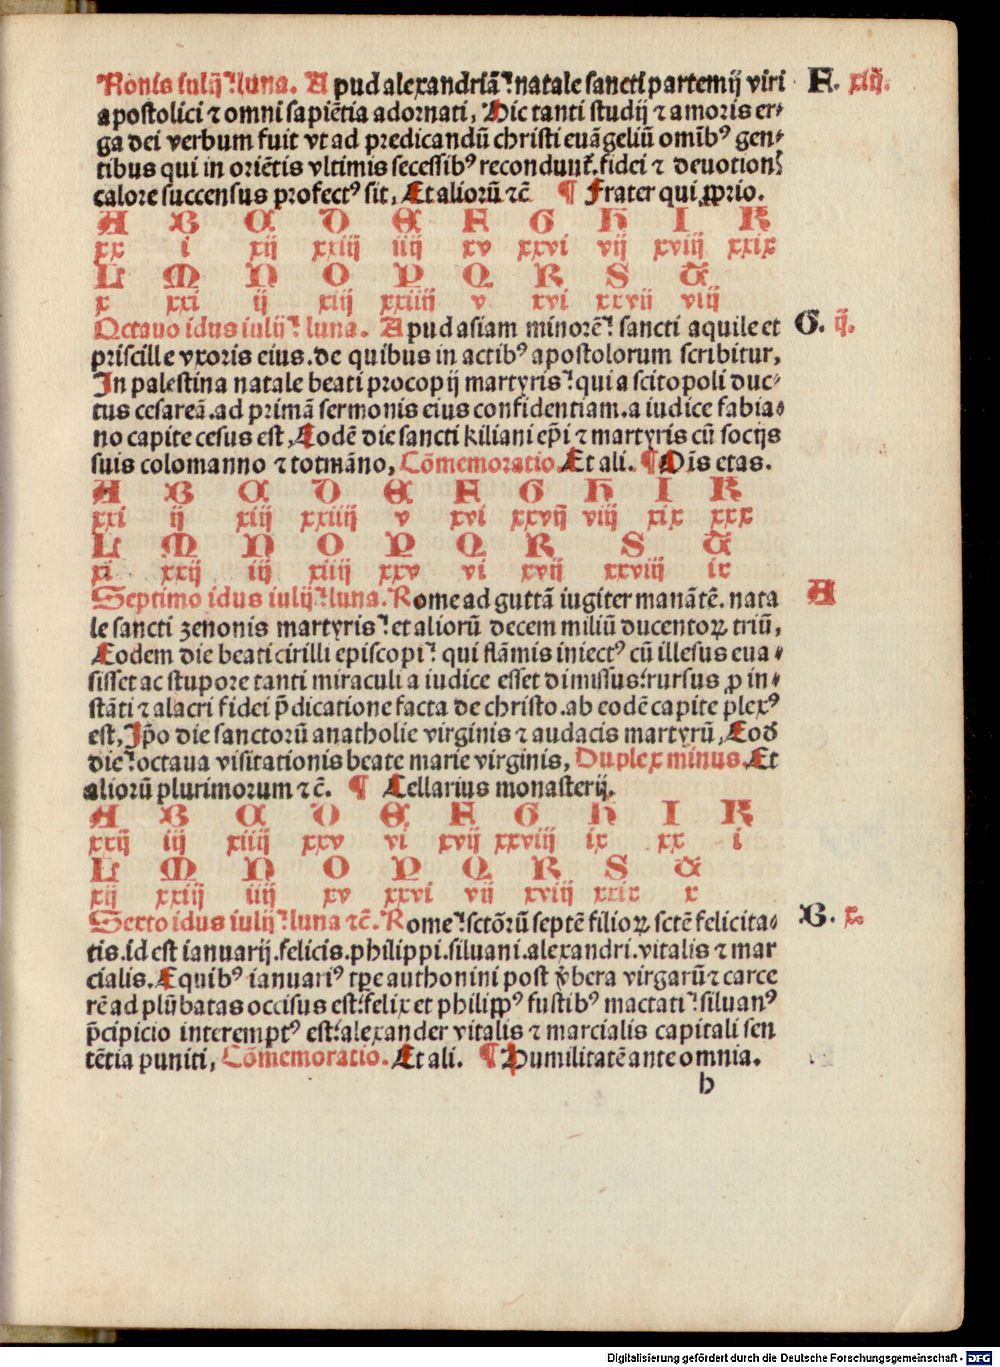 Nonis iulij: luna. Apud alexandriā: natale sancti partemij viri F. xiij.
apostolici ⁊ omni sapiētia adornati, Hic tanti studij ⁊ amoris er⸗
ga dei verbum fuit vt ad predicandū christi euāgeliū omībꝰ gen⸗
tibus qui in oriētis vltimis secessibꝰ recondunt̄. fidei ⁊ deuotionis
calore succensus profectꝰ sit, Et aliorū ⁊c̄ ¶ Frater qui ꝓprio.
A B C D E F G H I K
xx i xij xxiij iiij xv xxvi vij xviij xxix
L M N O P Q R S T
x xxi ij xiij xxiiij v xvi xxvij viij
Octauo idus iulij: luna. Apud asiam minorē: sancti aquile et G. ij.
priscille vxoris eius. de quibus in actibꝰ apostolorum scribitur,
In palestina natale beati procopij martyris: qui a scitopoli duc⸗
tus cesareā. ad primā sermonis eius confidentiam. a iudice fabia⸗
no capite cesus est, Eodē die sancti kiliani ep̄i ⁊ martyris cū socijs
suis colomanno ⁊ totmāno, Cōmemoratio. Et ali. ¶ Oīs etas.
A B C D E F G H I K
xxi ij xiij xxiiij v xvi xxvij viij xix xxx
L M N O P Q R S T
xi xxij iij xiiij xxv vi xvij xxviij ix
Septimo idus iulij: luna. Rome ad guttā iugiter manātē. nata A
le sancti zenonis martyris: et aliorū decem miliū ducentoꝝ triū,
Eodem die beati cirilli episcopi: qui flāmis iniectꝰ cū illesus eua⸗
sisset ac stupore tanti miraculi a iudice esset dimissus: rursus ꝓ in⸗
stāti ⁊ alacri fidei p̄dicatione facta de christo. ab eodē capite plexꝰ
est, Ip̄o die sanctorū anatholie virginis ⁊ audacis martyrū, Eod̄
die: octaua visitationis beate marie virginis, Duplex minus. Et
aliorū plurimorum ⁊c̄. ¶ Cellarius monasterij.
A B C D E F G H I K
xxij iij xiiij xxv vi xvij xxviij ix xx i
L M N O P Q R S T
xij xxiij iiij xv xxvi vij xviij xxix x
Sexto idus iulij: luna ⁊c̄. Rome: sctōrū septē filioꝝ sctē felicita⸗ B. x.
tis. id est ianuarij. felicis. philippi. siluani. alexandri. vitalis ⁊ mar
cialis. Equibꝰ ianuariꝰ tp̄e anthonini post v̄bera virgarū ⁊ carce
rē ad plūbatas occisus est: felix et philippꝰ fustibꝰ mactati: siluanꝰ
p̄cipicio interemptꝰ est: alexander vitalis ⁊ marcialis capitali sen
tētia puniti, Cōmemoratio. Et ali. ¶ Humilitatē ante omnia.
b
Digitalisierung gefördert durch die Deutsche Forschungsgemeinschaft - DFG